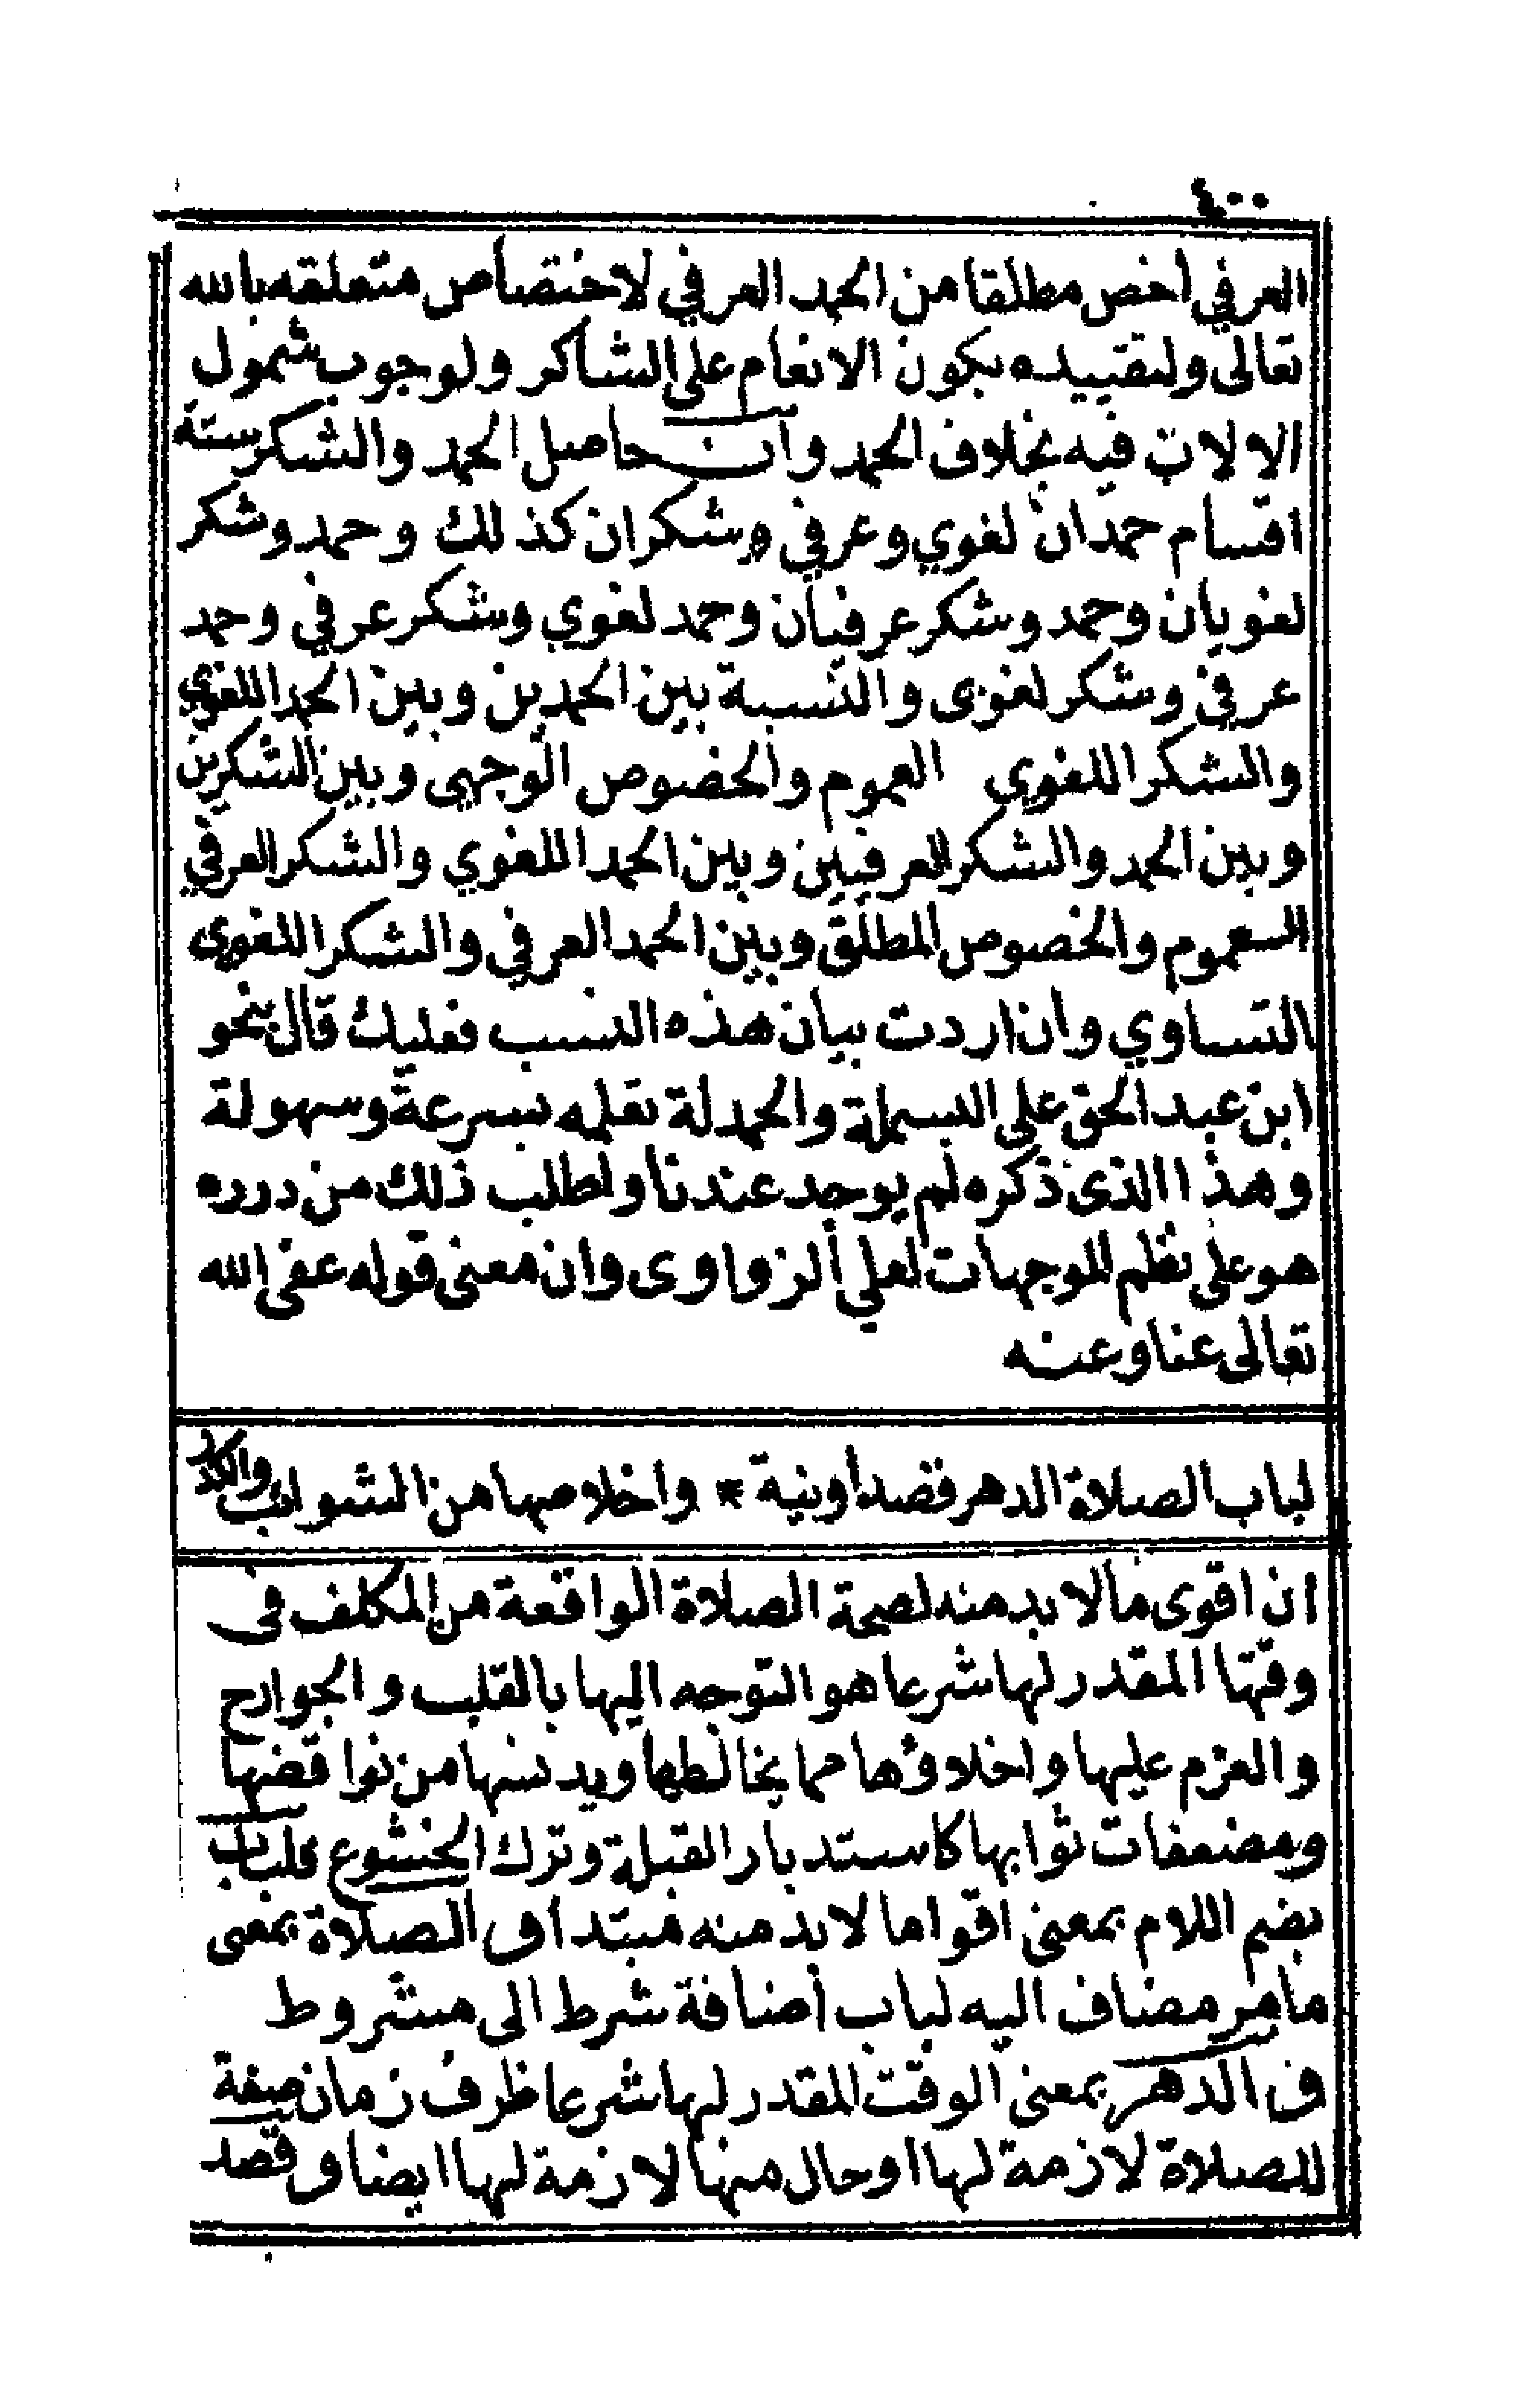 ٤٠٠
العرفي اخص مطلقا من الحمد العرفي لاختصاص متعلقه بالله
تعالى ولتقييده بكون الانعام على الشاكر ولوجوب شمول
الالات فيه بخلاف الحمد وان حاصل الحمد والشكر ستة
اقسام حمدان لغوي وعرفي وشكران كذلك وحمد وشكر
لغويان وحمد وشكر عرفيان وحمد لغوي وشكر عرفي وحمد
عرفي وشكر لغوى والنسبة بين الحمدين وبين الحمد اللغوي
والشكر اللغوي العموم والخصوص الوجهى وبين الشكرين
وبين الحمد والشكر العرفيين وبين الحمد اللغوي والشكر العرفي
العموم والخصوص المطلق وبين الحمد العرفي والشكر اللغوى
التساوي وان اردت بيان هذه النسب فعليك قال بنحو
ابن عبد الحق على البسملة والحمدلة تعلمه بسرعة وسهولة
وهذا الذى ذكره لم يوجد عندنا ولطلب ذلك من درره
هو على نظم الموجهات لعلي الزواوى وان معنى قوله عفى الله
تعالى عنا وعنه
لباب الصلاة الدهر قصد أونية * واخلاصها من الشوائب والكدر
ان اقوى مالا بد منه لصحة الصلاة الواقعة من المكلف فى
وقتها المقدر لها شرعا هو التوجه اليها بالقلب والجوارح
والعزم عليها واخلاؤها مما يخالطها ويدنسها من نواقضها
ومضعفات ثوابها كاستدبار القبلة وترك الخشوع فلباب
بضم اللام بمعنى اقواما لابد منه مبتدأ و الصلاة بمعنى
مامر مضاف اليه لباب اضافة شرط الى مشروط
و الدهر بمعنى الوقت المقدر لها شرعا ظرف زمان صفة
للصلاة لازمة لها اوحال منها لازمة لها ايضا و قصد